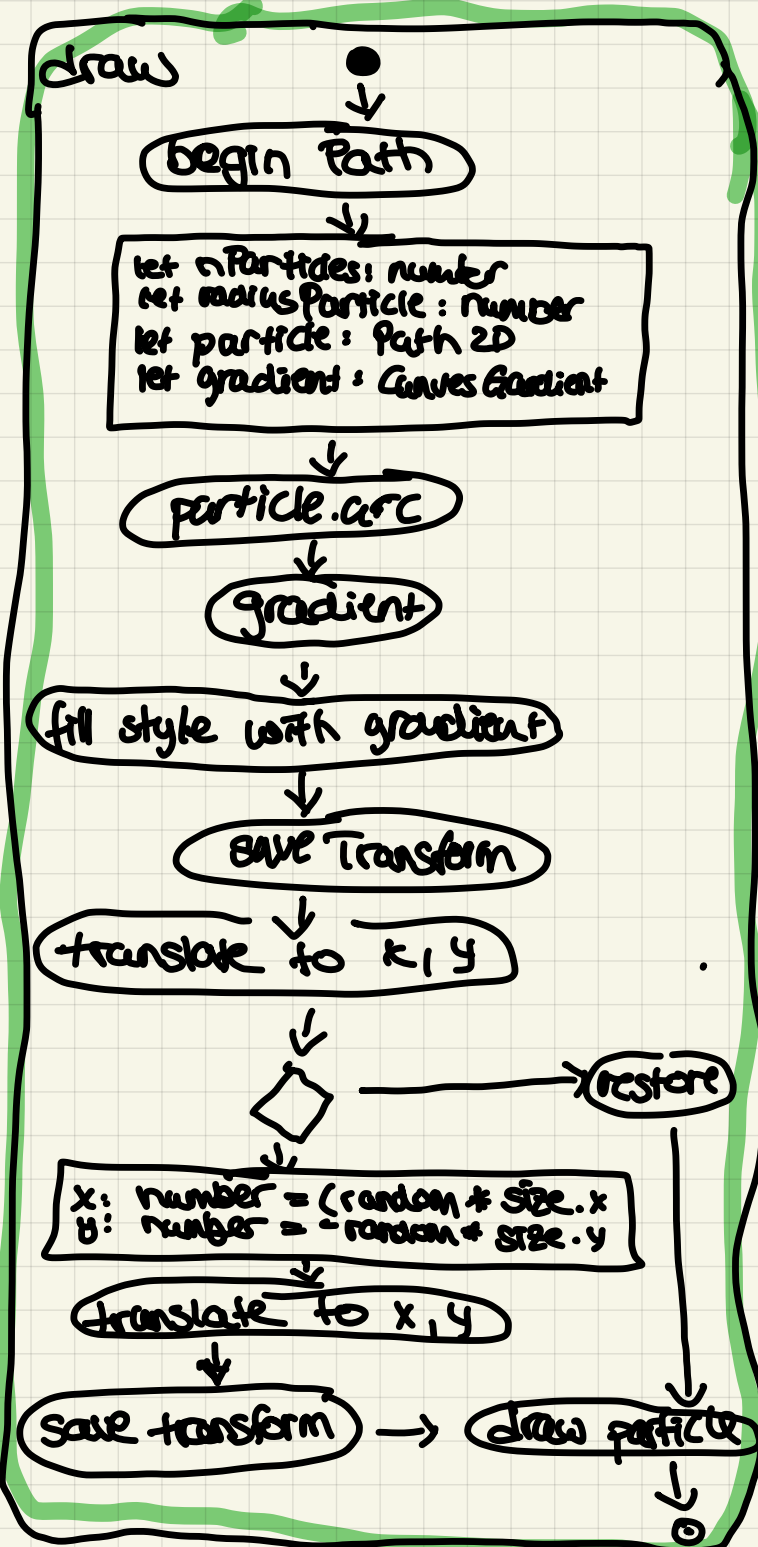 draw
begin Path
let nParticles: number
let radiusParticle: number
let particle: Path 2D
let gradient: CanvesGardient
particle.arc
gradient
fill style with graudient
save Transform
translate to x, y
restore
x: number = (random * size.x
y: number = - random * size.y
translate to x, y
save transform
draw particle